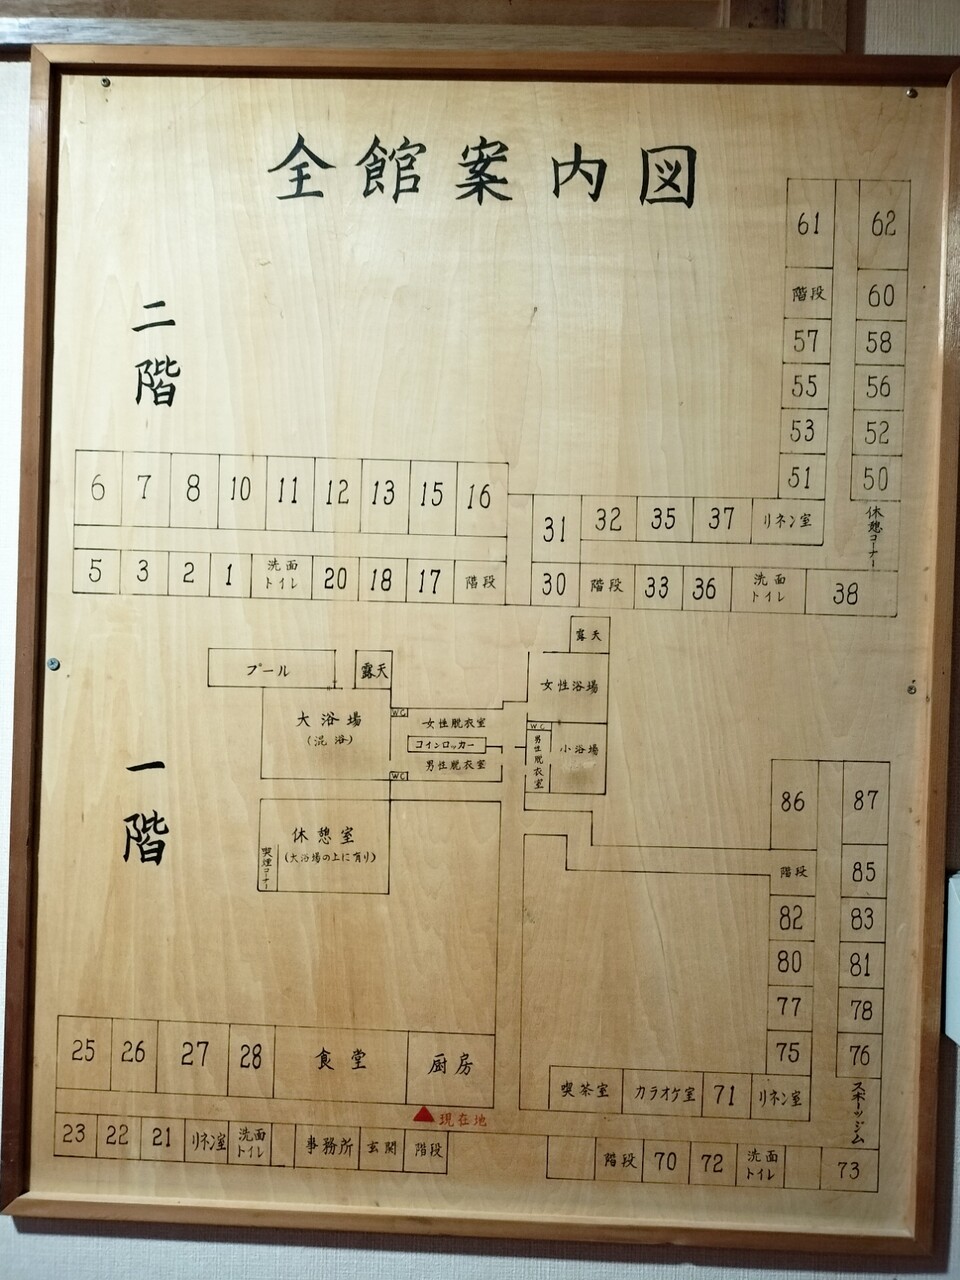 全館案内図
二階
61 62
階段 60
57 58
55 56
53 52
51 50
休憩コーナー
6 7 8 10 11 12 13 15 16
31 32 35 37 リネン室
5 3 2 1 洗面トイレ 20 18 17 階段
30 階段 33 36 洗面トイレ 38
一階
露天
プール 露天
女性浴場
大浴場
(混浴)
WC
女性脱衣室
コインロッカー
男性脱衣室
WC
WC
男性脱衣室
小浴場
休憩室
(大浴場の上に有り)
喫煙コーナー
86 87
階段 85
82 83
80 81
77 78
75 76
スポーツジム
25 26 27 28 食堂 厨房
喫茶室 カラオケ室 71 リネン室
現在地
23 22 21 リネン室 洗面トイレ 事務所 玄関 階段
階段 70 72 洗面トイレ 73